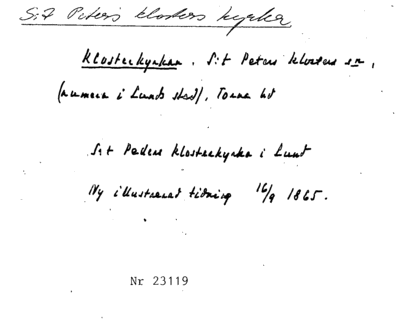 S:t Peters klosters kyrka
Klosterkyrkan, S:t Peters klosters sn,
(numera i Lunds stad), Torna hd
S:t Peders klosterkyrka i Lund
Ny illustrerad tidning 16/9 1865.
Nr 23119